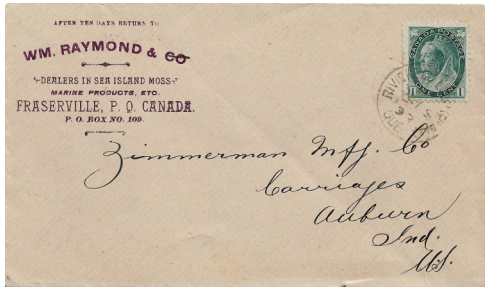 AFTER TEN DAYS RETURN TO
WM. RAYMOND & CO
DEALERS IN SEA ISLAND MOSS
MARINE PRODUCTS, ETC.
FRASERVILLE, P. Q. CANADA.
P. O. BOX NO. 109.
CANADA POSTAGE
1 ONE CENT 1
RIVIE
QUE
Zimmerman Mfg. Co
Carriages
Auburn
Ind.
U.S.